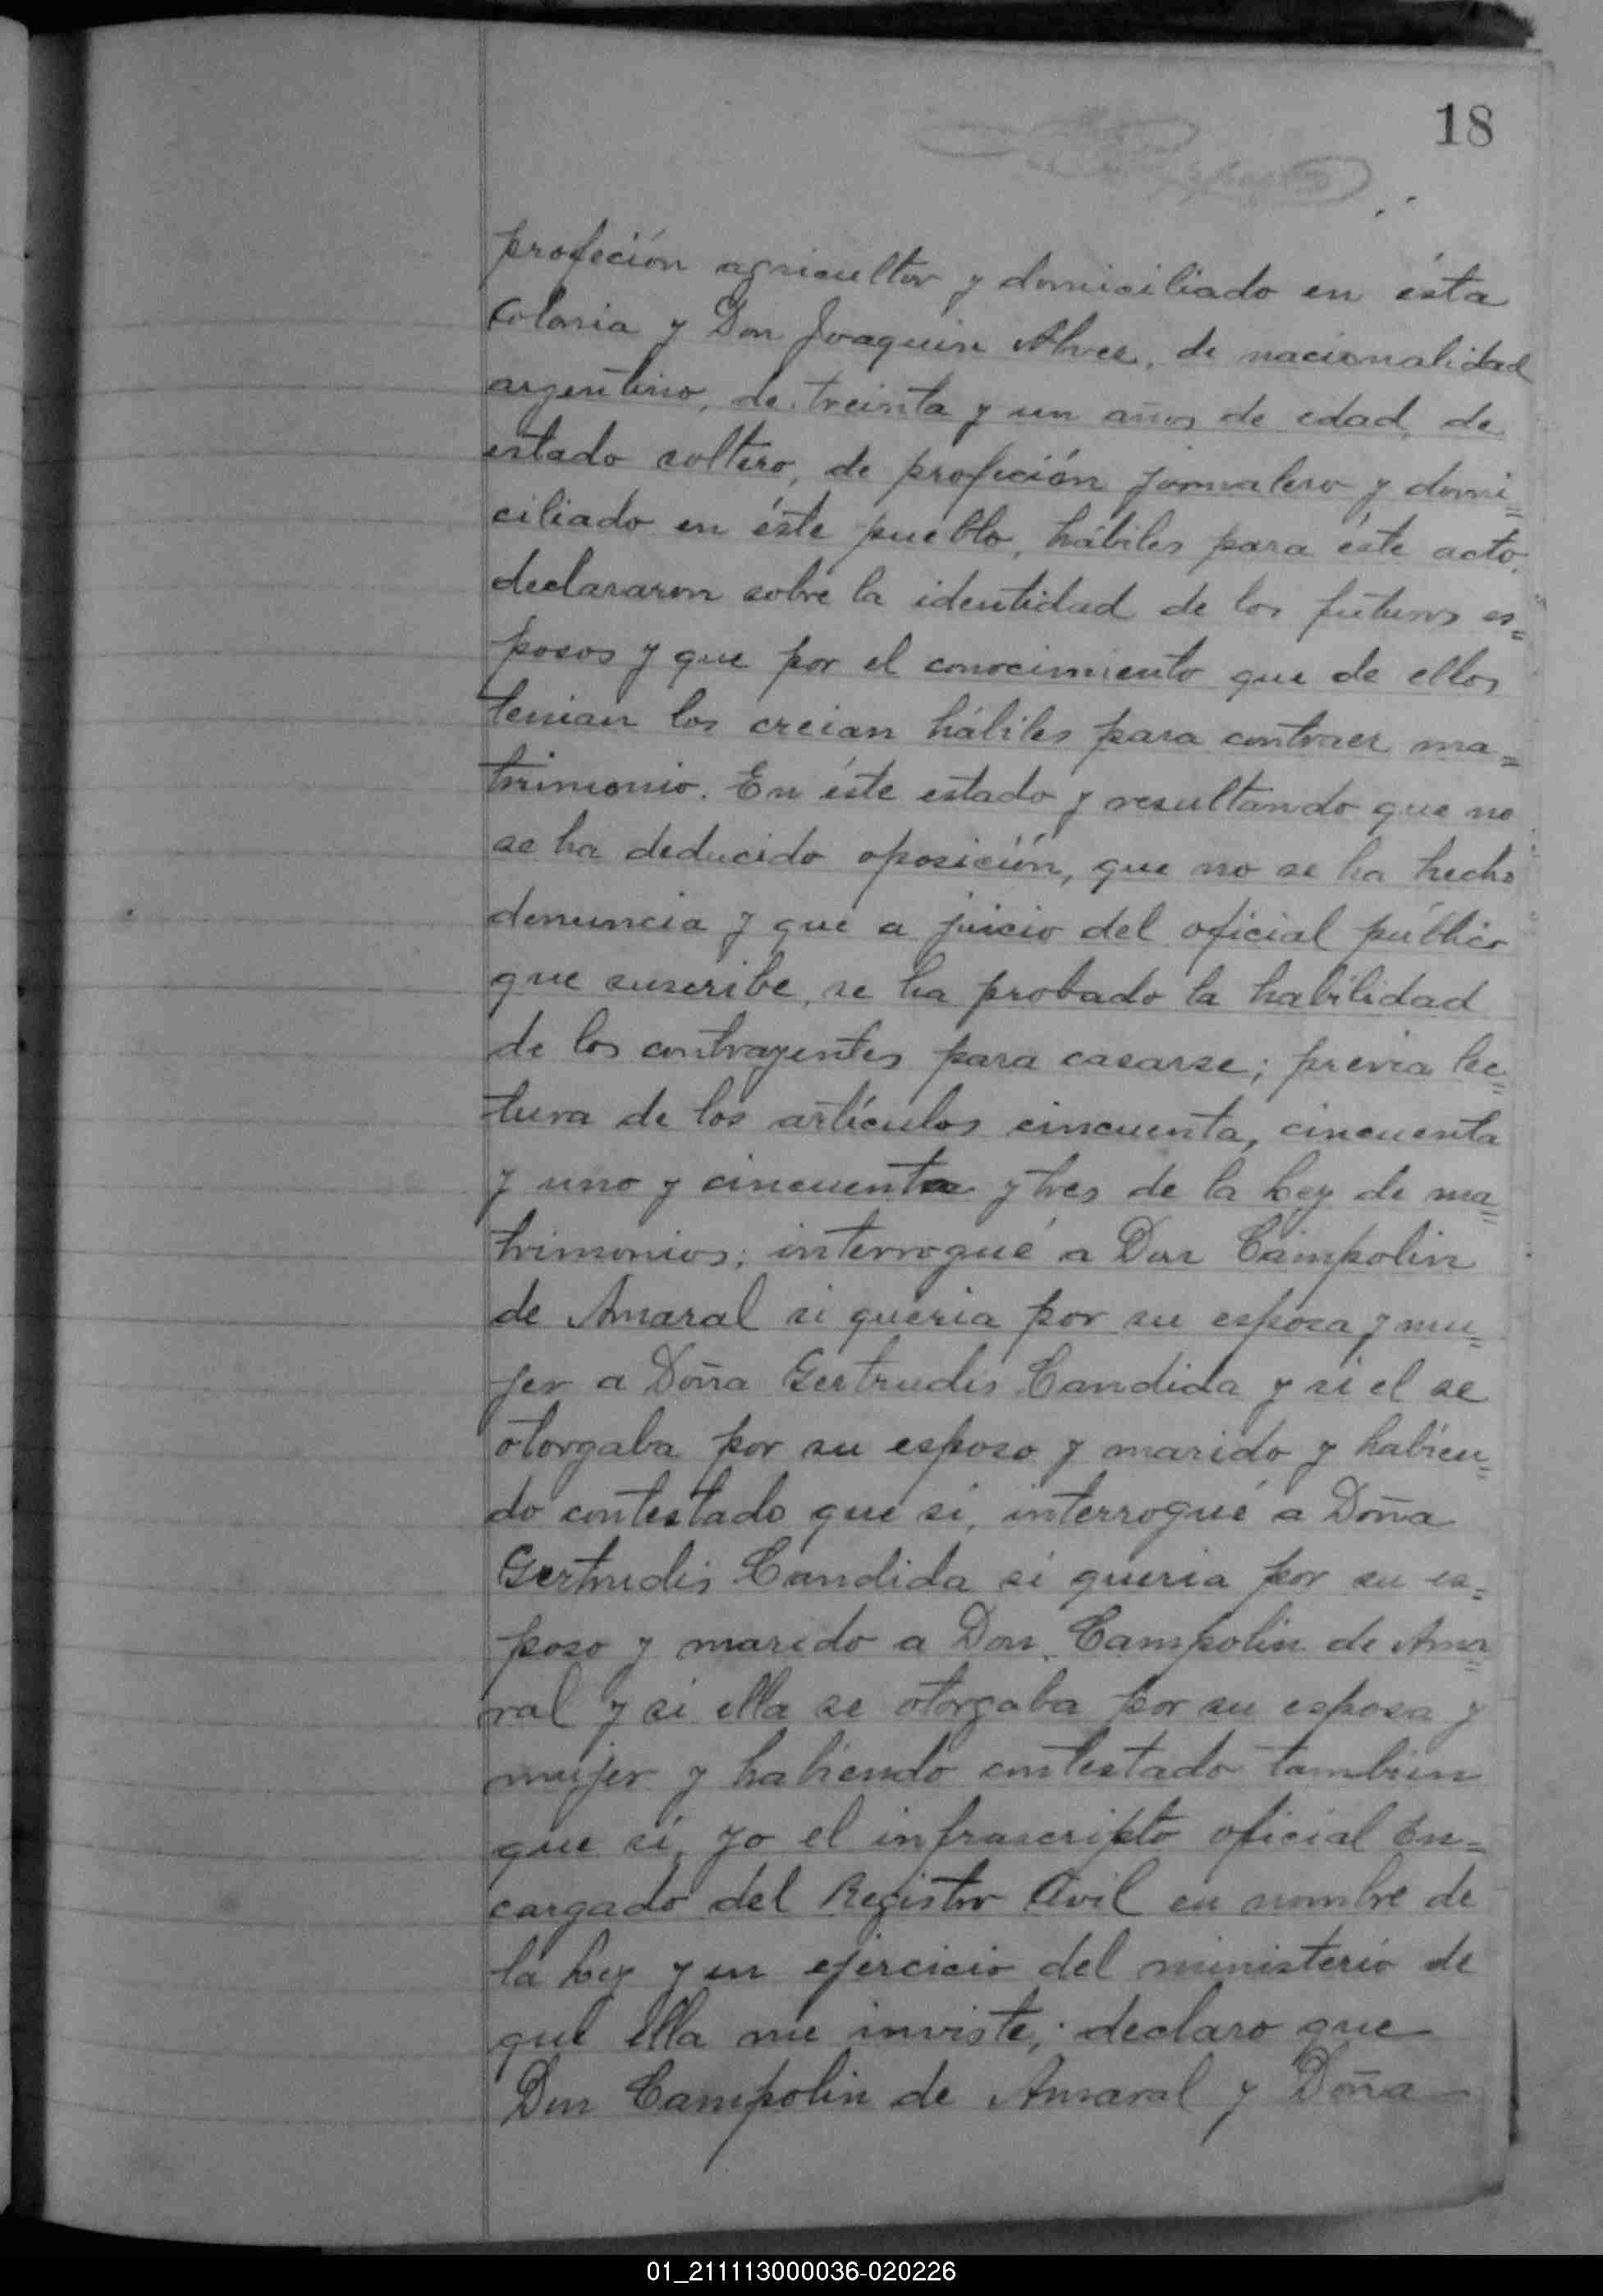 18
profeción agricultor y domiciliado en ésta
Colonia y Don Joaquin Alves, de nacionalidad
argentino, de treinta y un años de edad, de
estado soltero, de profeción jornalero y domi=
ciliado en éste pueblo, hábiles para éste acto,
declararon sobre la identidad de los futuros es=
posos y que por el conocimiento que de ellos
tenian los creian hábiles para contraer ma=
trimonio. En éste estado y resultando que no
se ha deducido oposición, que no se ha hecho
denuncia y que a juicio del oficial público
que suscribe, se ha probado la habilidad
de los contrayentes para casarse; previa lec=
tura de los artículos cincuenta, cincuenta
y uno y cincuenta y tres de la Ley de ma=
trimonios; interrogué a Don Campolin
de Amaral si queria por su esposa y mu=
jer a Doña Gertrudis Candida y si el se
otorgaba por su esposo y marido y habien=
do contestado que si, interrogué a Doña
Gertrudis Candida si queria por su es=
poso y marido a Don Campolin de Ama=
ral y si ella se otorgaba por su esposa y
mujer y habiendo contestado tambien
que si, yo el infrascripto oficial En=
cargado del Registro Civil en nombre de
la Ley y en ejercicio del ministerio de
que ella me inviste; declaro que
Don Campolin de Amaral y Doña
01_211113000036-020226